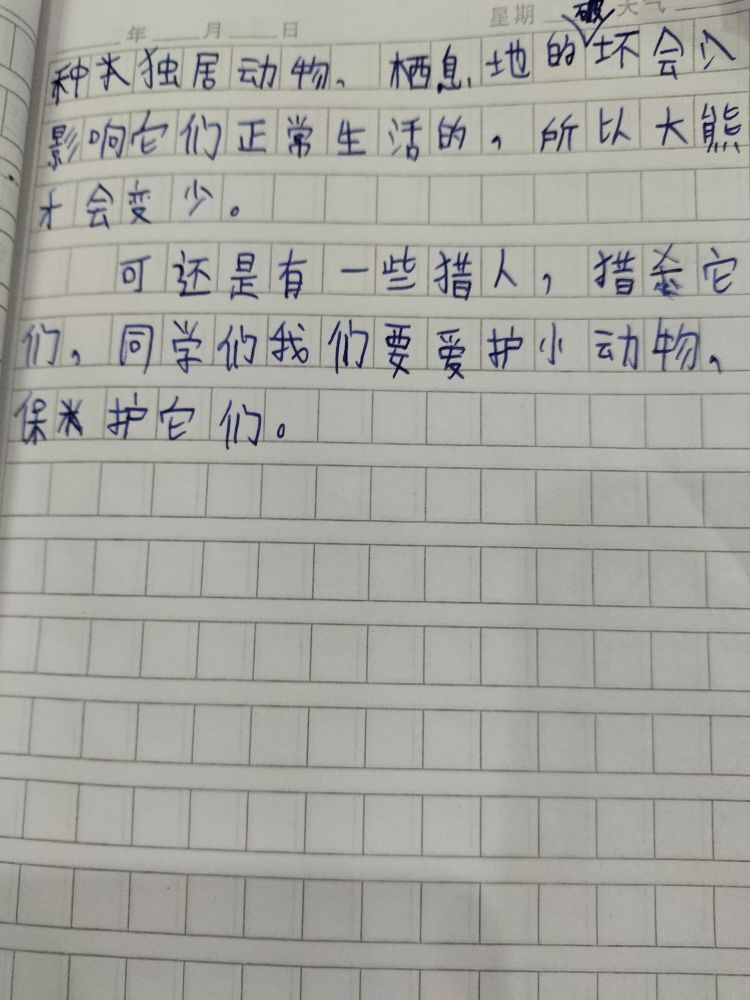 年 月 日 星期 天气
种 独居动物、栖息地的破坏会
影响它们正常生活的，所以大熊
才会变少。
可还是有一些猎人，猎杀它
们，同学们我们要爱护小动物、
保 护它们。